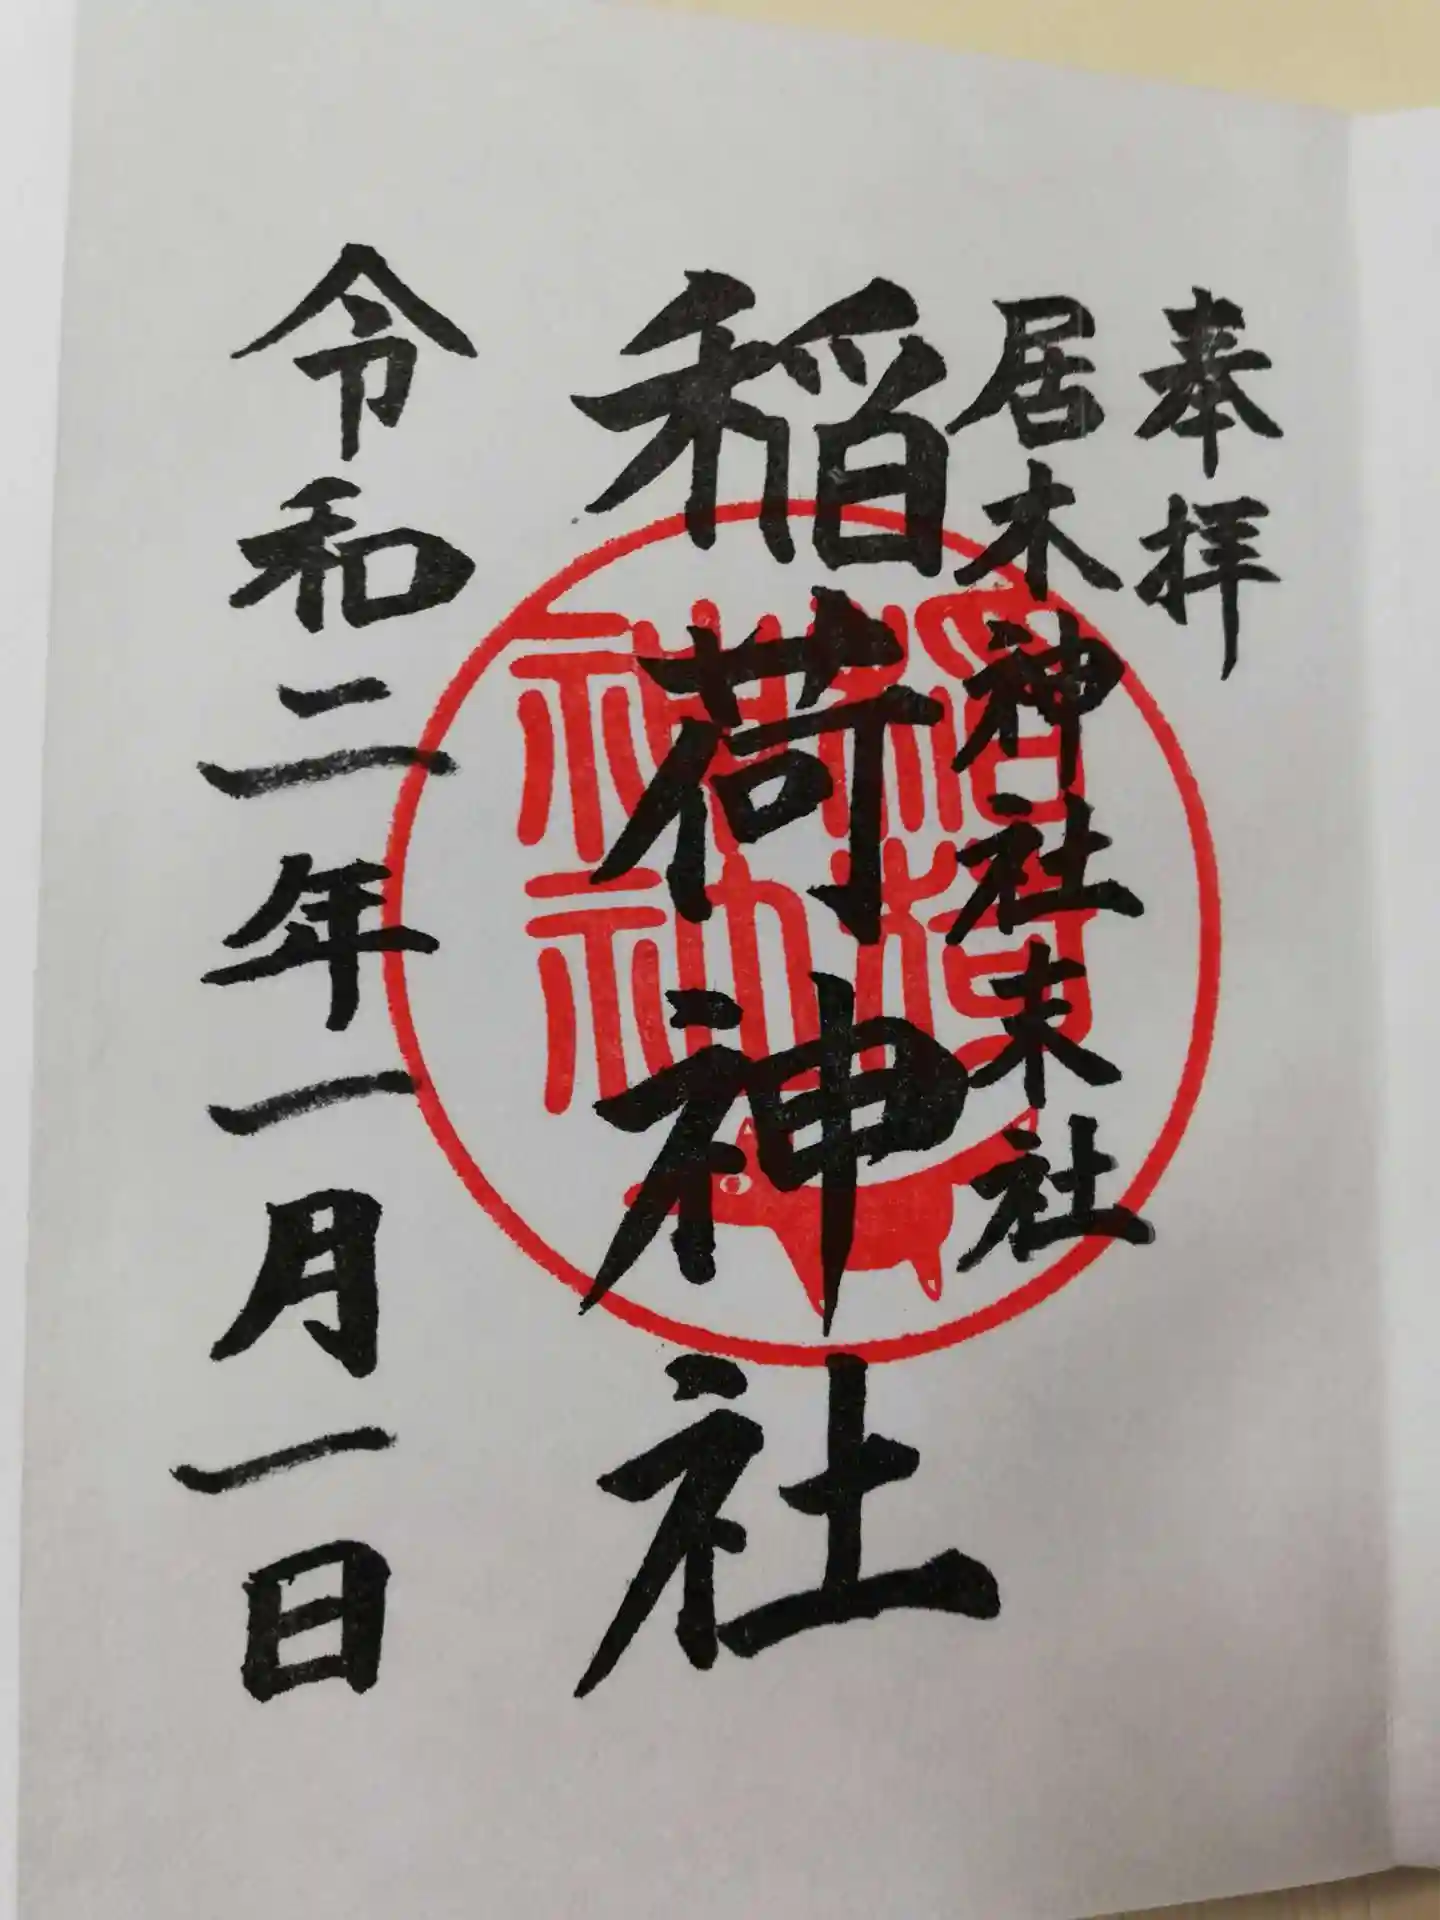 奉拝
居木神社末社
稲荷神社
稲荷神社
令和二年一月一日